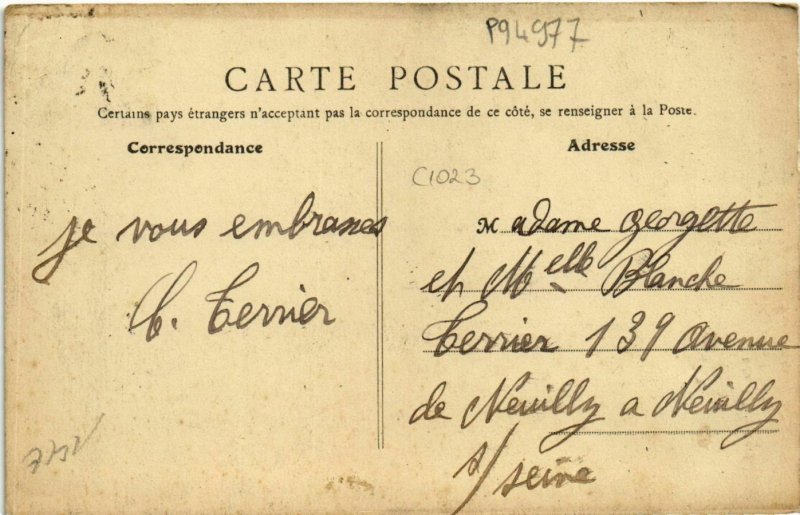 P94977
CARTE POSTALE
Certains pays étrangers n'acceptant pas la correspondance de ce côté, se renseigner à la Poste.
Correspondance
je vous embrasses
C. Terrier
Adresse
C1023
Madame georgette
et Melle Blanche
Terrier 139 avenue
de Neuilly a Neuilly
s/ seine